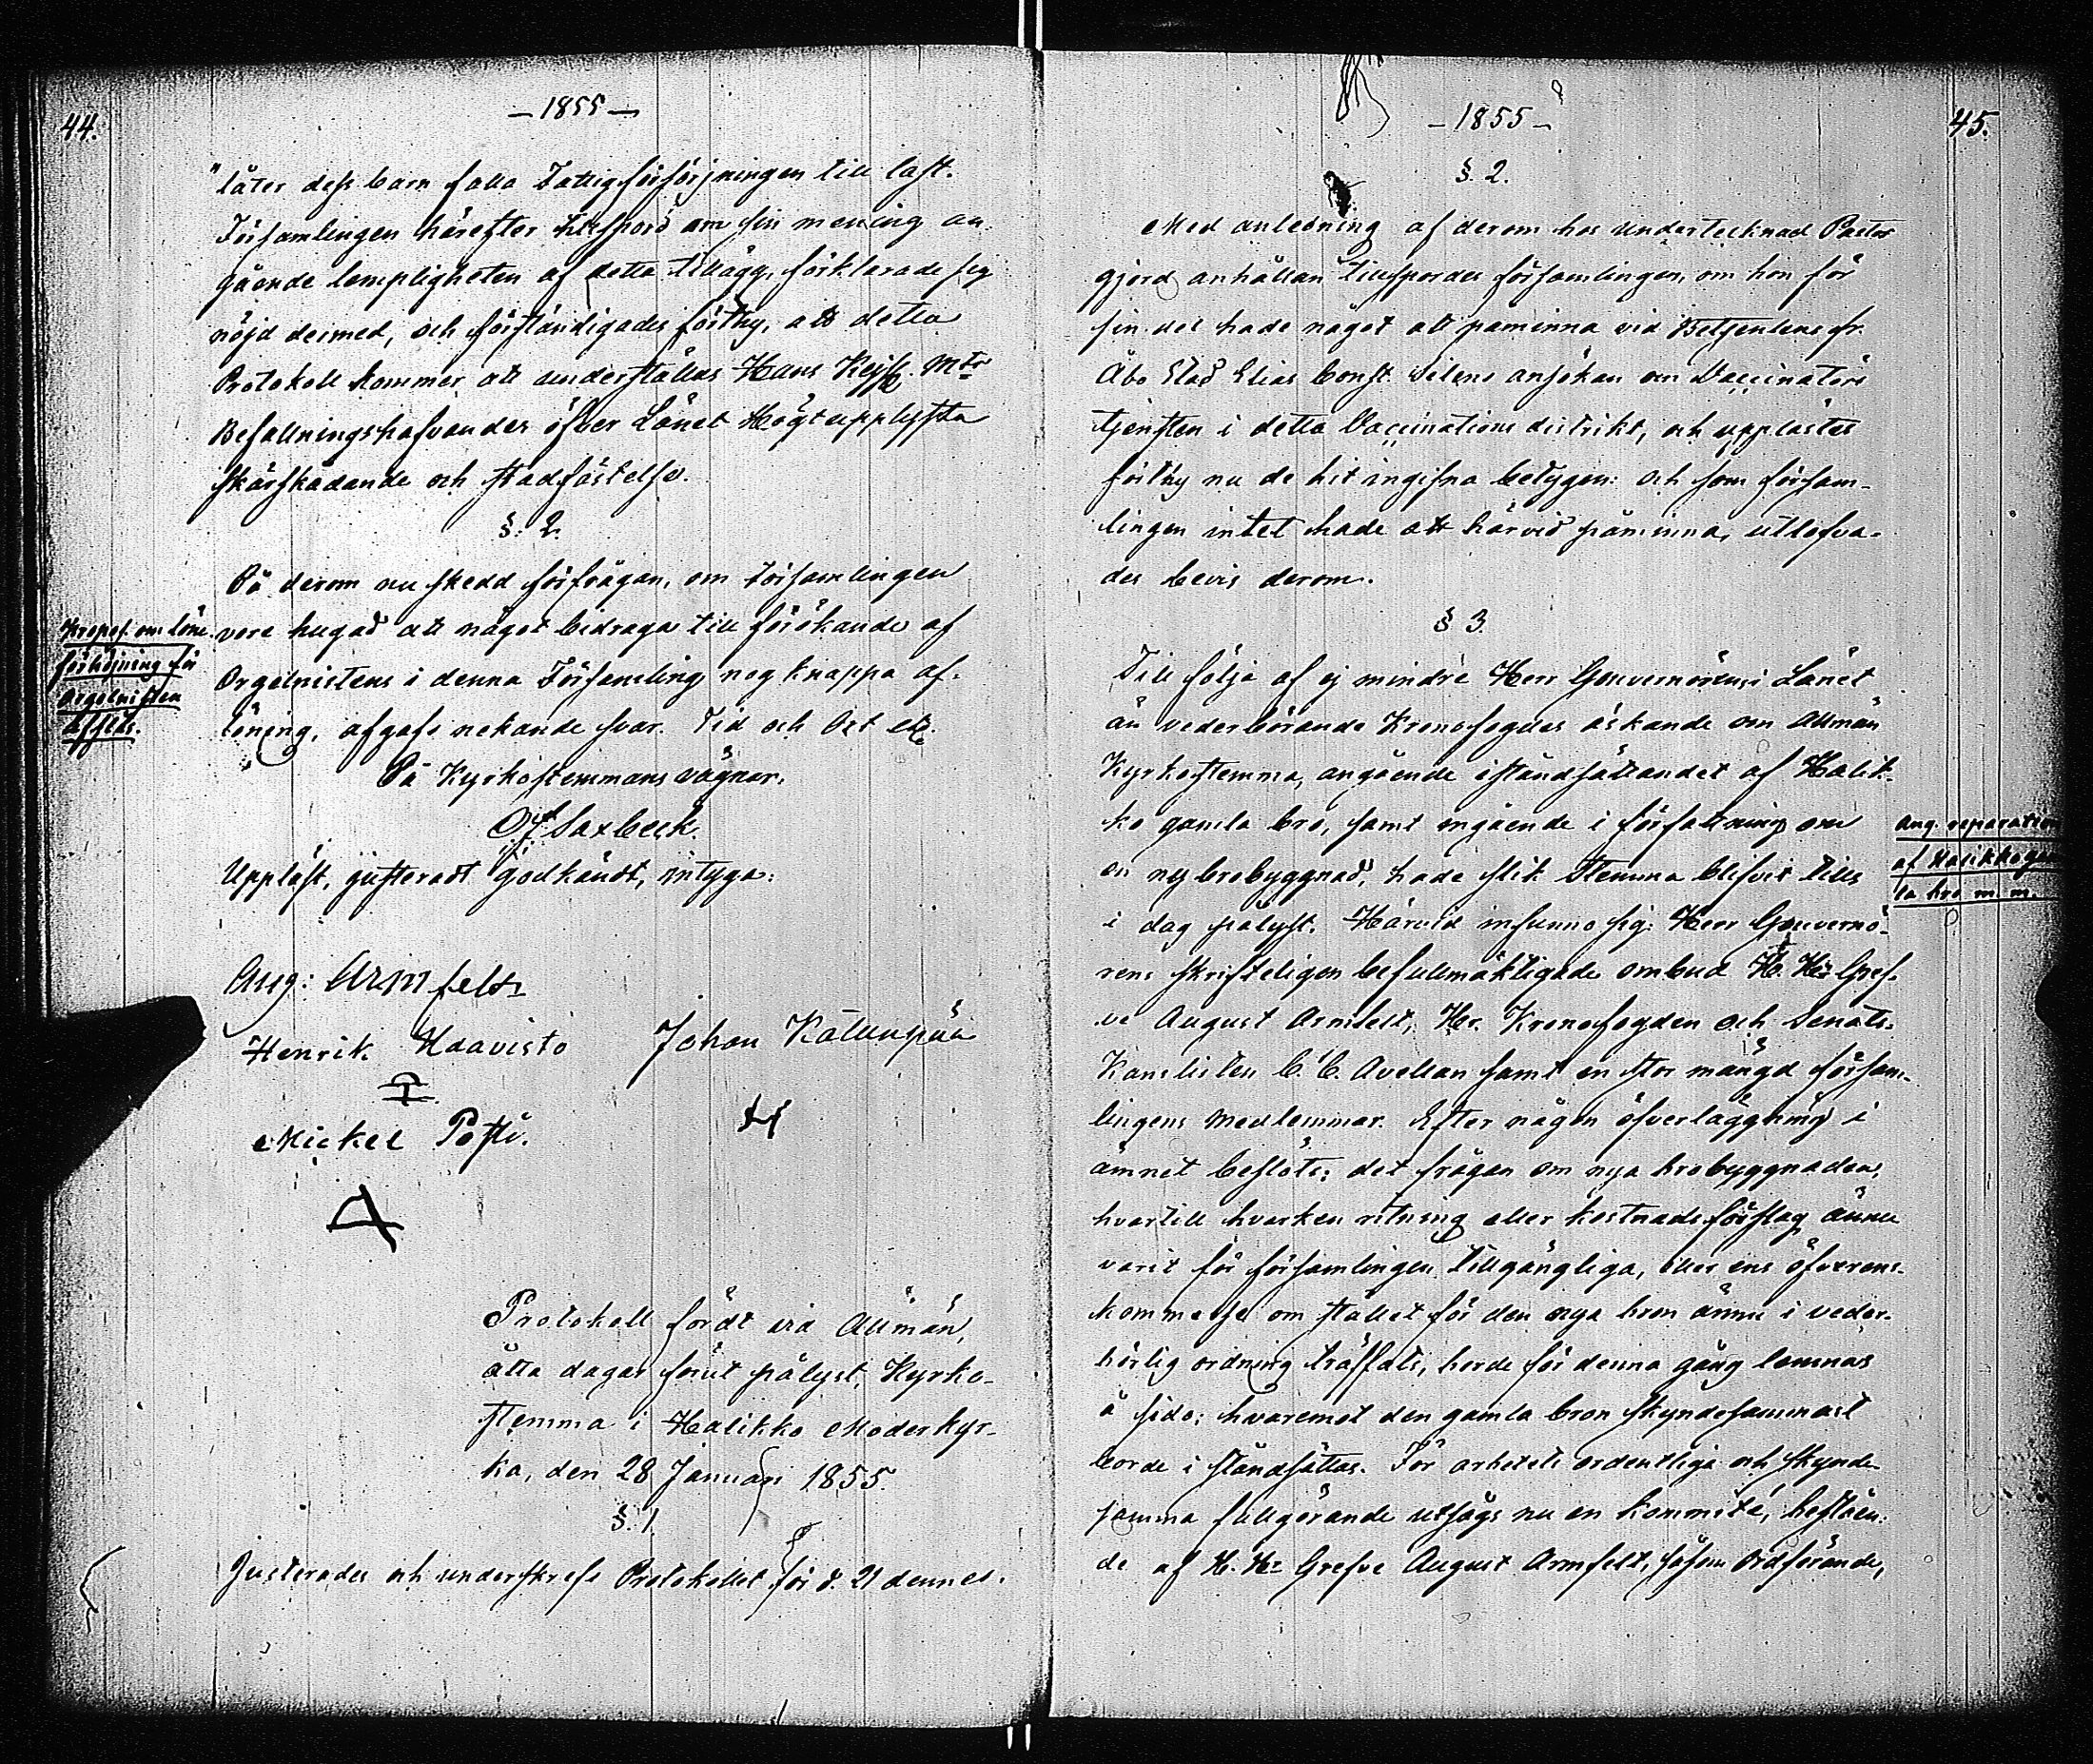 44.
— 1855 —
"låter dess barn falla Fattigförsörjningen till last.
Församlingen härefter tillspord om sin mening an-
gående lempligheten af detta tillägg, förklarade sig
nöjd dermed, och förständigades förthy, att detta
Protokoll kommer att underställas Hans Kejs. Mts
Befallningshafvandes öfver Länet Högtupplysta
skärskådande och stadfästelse.
§. 2.
På derom nu skedd förfrågan, om Församlingen
vore hugad att något bidraga till förökande af
Orgelnistens i denna Församling nog knappa af-
löning, afgafs nekande svar. Tid och Ort etc.
Propos. om löne-
förhöjning för
Orgelnisten
Afslås.
På Kyrkostemmans vägnar.
Saxbeck.
Uppläst, justeradt godkändt, intyga:
Aug: Armfelt
Henrik Haavisto Johan
Mickel
Protokoll fördt vid Allmän,
åtta dagar förut pålyst, Kyrko-
stemma i Halikko Moderkyr-
ka, den 28 Januari 1855.
§. 1
Justerades och underskrefs Protokollet för d. 21 dennes.
45.
— 1855 —
§. 2.
Med anledning af derom hos undertecknad Pastor
gjord anhållan tillspordes församlingen, om hon för
sin del hade något att påminna vid Betjenten fr.
Åbo Stad Elias Const. ansökan om Vaccinatörs
tjensten i detta Vaccinations distrikt, och upplästes
förthy nu de hit ingifna betygen: och som försam-
lingen intet hade att härvid påminna, utlofva-
des bevis derom.
§ 3.
Till följe af ej mindre Herr Gouvernörens i Länet
än vederbörande Kronofogdes äskande om Allmän
Kyrkostemma, angående iståndsättandet af Halik-
ko gamla bro, samt ingående i författning om
en ny brobyggnad, hade slik Stemma blifvit tills
i dag pålyst. Härvid infunno sig: Herr Gouvernö-
rens skrifteligen befullmäktigade ombud H. Hr Gref-
ve August Armfelt, Hr. Kronofogden och Senats-
Kanslisten C. C. Avellan samt en stor mängd försam-
lingens medlemmar. Efter någon öfverläggning i
ämnet beslöts: det frågan om nya brobyggnaden,
hvartill hvarken ritning eller kostnadsförslag ännu
varit för församlingen tillgängliga, eller ens öfverens-
kommelse om stället för den nya bron ännu i veder-
börlig ordning träffats, borde för denna gång lemnas
å sido; hvaremot den gamla bron skyndesammast
borde i ståndsättas. För arbetets ordentliga och skynde-
samma fullgörande utsågs nu en kommité, bestående
de af H. Hr Grefve August Armfelt, såsom Ordförande,
Ang. reparation
af Halikko gam-
la bro m. m.